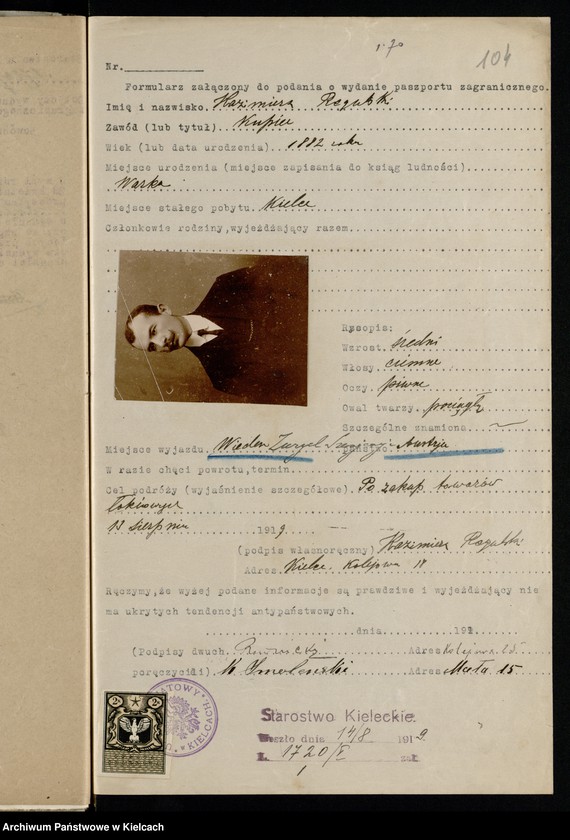 104
Nr.
Formularz załączony do podania o wydanie paszportu zagranicznego.
Imię i nazwisko. Kazimierz Rogulski
Zawód (lub tytuł). Kupiec
Wiek (lub data urodzenia). 1882 roku
Miejsce urodzenia (miejsce zapisania do ksiąg ludności)
Warka
Miejsce stałego pobytu. Kielce
Członkowie rodziny, wyjeżdżający razem
Rysopis:
Wzrost. średni
Włosy. ciemne
Oczy. piwne
Owal twarzy. pociągły
Szczególne znamiona. —
Miejsce wyjazdu. Wieden państwo. Austrja
W razie chęci powrotu, termin.
Cel podróży (wyjaśnienie szczegółowe). Po zakup towarów
13 sierpnia 1919
(podpis własnoręczny) Kazimierz Rogulski
Adres. Kielce. Kolejowa 18
Ręczymy, że wyżej podane informacje są prawdziwe i wyjeżdżający nie
ma ukrytych tendencji antypaństwowych.
dnia 191
(Podpisy dwuch. Adres
poręczycieli) Adres Mała 15
2 2
Starostwo Kieleckie.
Weszło dnia 14/8 1919
L. 1720/I zał.
Archiwum Państwowe w Kielcach